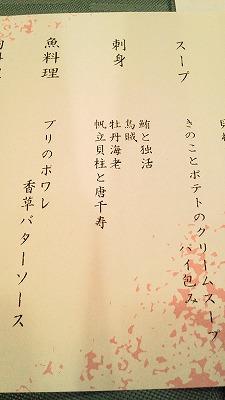 スープ
きのことポテトのクリームスープ
パイ包み
刺身
鮪と独活
烏賊
牡丹海老
帆立貝柱と唐千寿
魚料理
ブリのポワレ
香草バターソース
肉料理